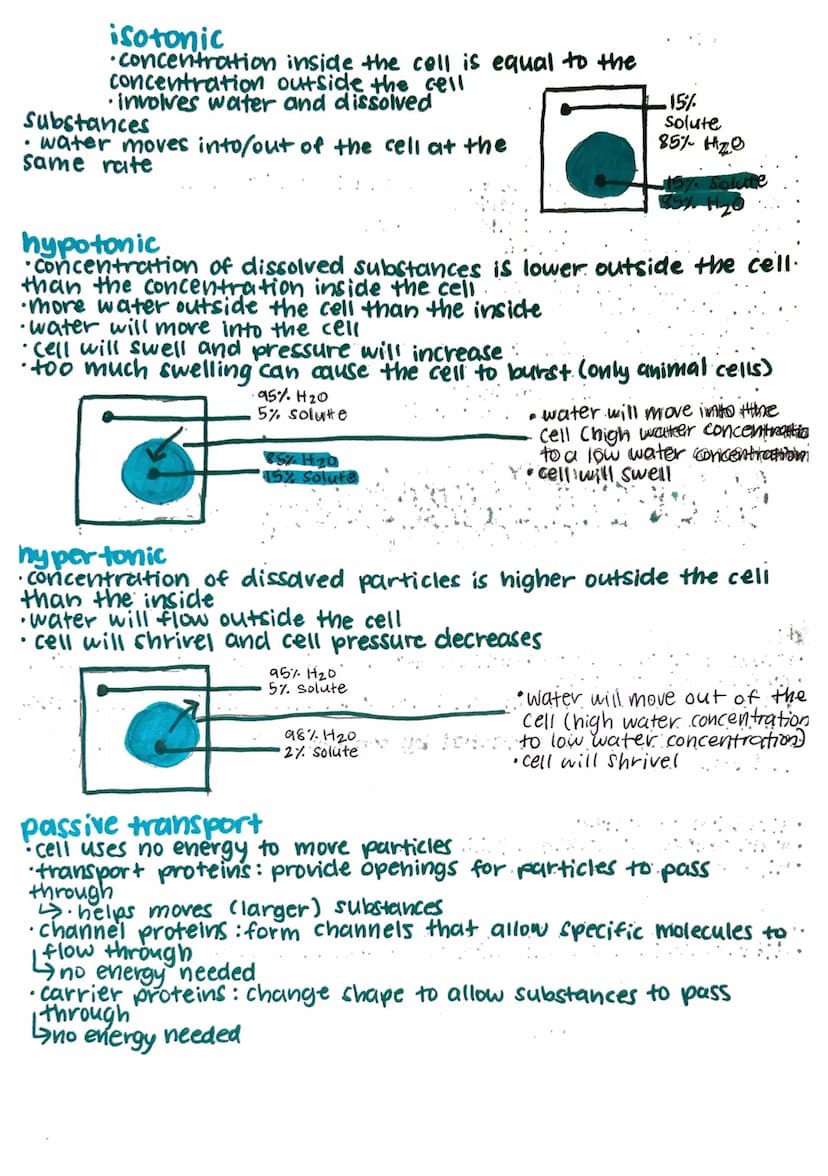 isotonic
•concentration inside the cell is equal to the
concentration outside the cell
•involves water and dissolved
substances
• water moves into/out of the cell at the
same rate
15%
solute
85% H2O
15% Solute
85% H2O
hypotonic
•concentration of dissolved substances is lower outside the cell
than the concentration inside the cell
•more water outside the cell than the inside
•water will more into the cell
•cell will swell and pressure will increase
•too much swelling can cause the cell to burst (only animal cells)
95% H2O
5% solute
85% H2O
15% Solute
• water will move into the
cell (high water concentratio
to a low water concentration
•cell will swell
hypertonic
•concentration of dissolved particles is higher outside the cell
than the inside
•water will flow outside the cell
• cell will shrivel and cell pressure decreases
95% H2O
5% solute
98% H2O
2% solute
•water will move out of the
cell (high water concentration
to low water concentration)
•cell will shrivel
passive transport
•cell uses no energy to move particles
•transport proteins: provide openings for particles to pass
through
↳•helps moves (larger) substances
•channel proteins: form channels that allow specific molecules to
flow through
↳no energy needed
•carrier proteins: change shape to allow substances to pass
through
↳no energy needed